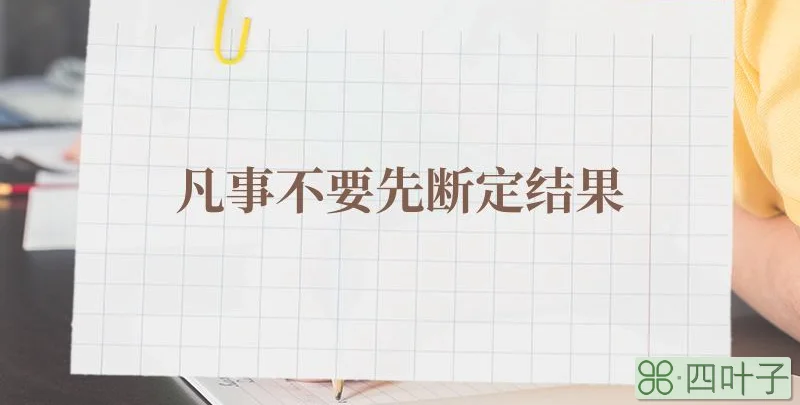 凡事不要先断定结果
四叶子